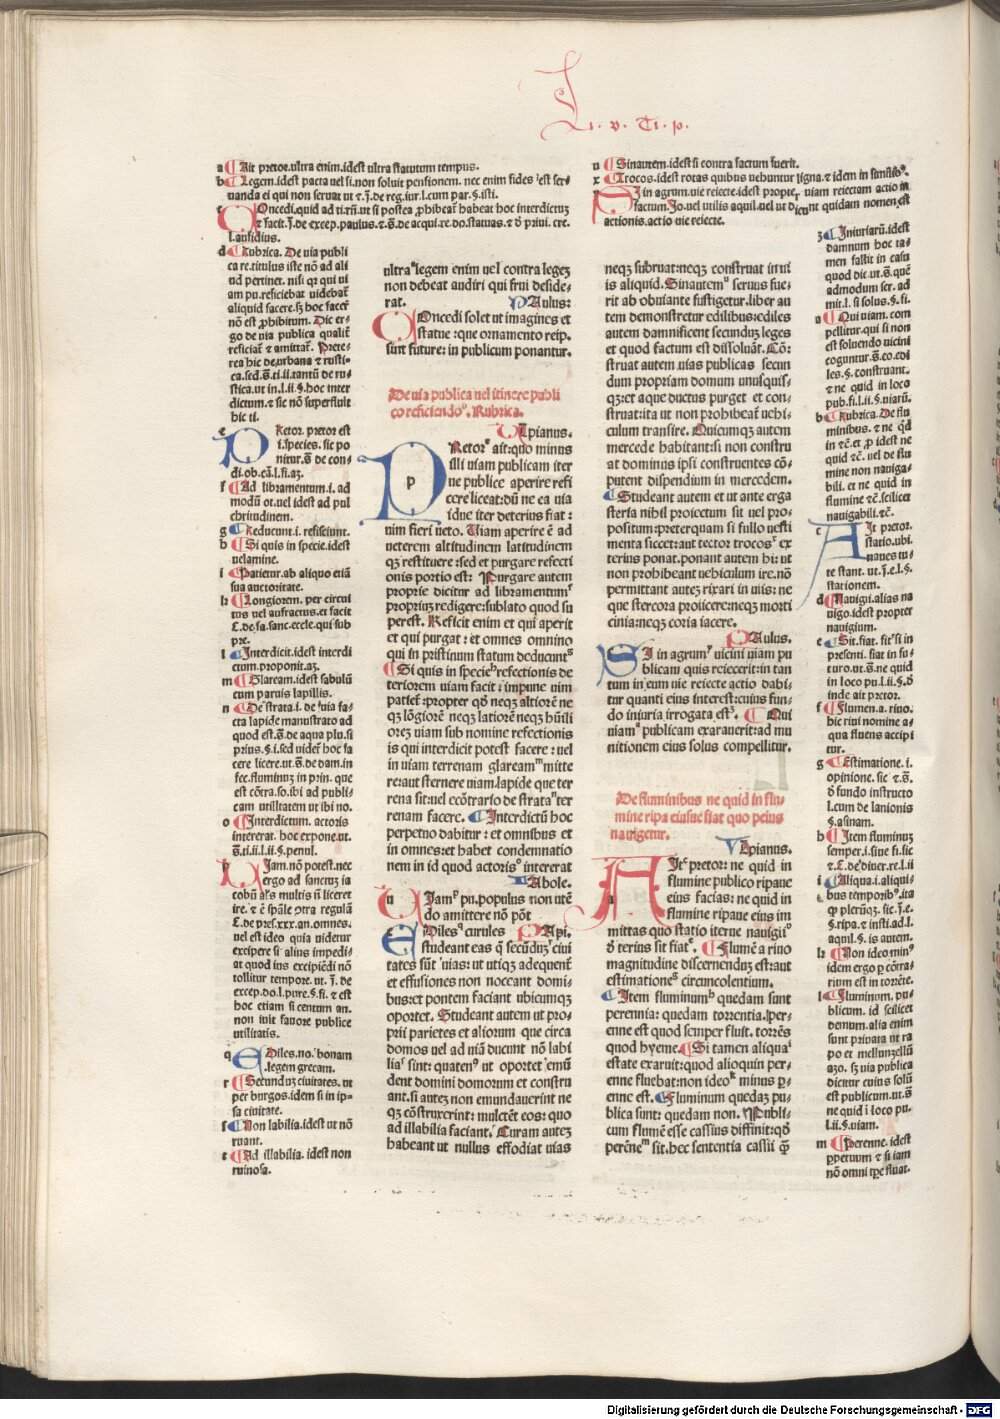 L. v. Ti. p.
a Ait pretor.ultra enim.idest ultra statutum tempus.
b Legem.idest pacta uel si.non soluit pensionem. nec enim fides est ser-
uanda ei qui non seruat ut
c Oncedi.quid ad
l.aufidius.
d Rubrica. De uia publi
ca re.titulus iste nō ad ali
ud pertinet. nisi qr qui ui
am pu.reficiebat uidebat̄
aliquid facere.sꝫ hoc facer̄
nō est ꝓhibitum. Dic er-
go de uia publica qualit̄
reficiat̄ et amittat̄. Prete-
rea hic de urbana et rusti-
dictum.et sic nō superfluit
hic ti.
e PRetor. pretor est
i.species. sic po
nitur.
f Ad libramentum.i. ad
modū ot.uel idest ad pul
chritudinem.
g Reducunt.i. reficiunt.
h Si quis in specie.idest
uelamine.
i Patietur.ab aliquo etiā
sua auctoritate.
k Longiorem. per circui
tus uel anfractus.et facit
l Interdicit.idest interdi
ctum.proponit.
m Glaream.idest sabulū
cum paruis lapillis.
n De strata.i. de uia fa-
cta lapide manustrato ad
cere licere.ut
fec.fluminū in prin. que
est cōtra.so.ibi ad publi-
cam utilitatem ut ibi no.
o Interdictum. actoris
intererat. hoc expone.ut.
p Iam.nō potest.nec
ergo ad sanctuȝ ia
cobū
excipere si alius impedi-
at quod ius excipiēdi nō
tollitur tempore.ut
hoc etiam si centum an.
non iuit fauore publice
utilitatis.
q EDiles.no. bonam
.legem grecam.
r Secunduȝ ciuitates. ut
per burgos.idem si in ip-
sa ciuitate.
s Non labilia.idest ut nō
ruant.
t Ad illabilia. idest non
ruinosa.
ultra legem enim uel contra legeȝ
non debeat audiri qui frui deside-
rat. Paulus:
COncedi solet ut imagines et
statue:que ornamento reip.
sunt future:in publicum ponantur.
De uia publica uel itinere publi
co reficiendo. Rubrica.
Vlpianus.
PRetor ait:quo minus
illi uiam publicam iter
ue publice aperire refi
cere liceat:dū ne ea uia
idue iter deterius fiat:
uim fieri ueto. Uiam aperire ē ad
ueterem altitudinem latitudinem
qȝ restituere:sed et purgare refecti
onis portio est: Purgare autem
proprie dicitur ad libramentum
propriuȝ redigere:sublato quod su
perest. Reficit enim et qui aperit
et qui purgat:et omnes omnino
qui in pristinum statum deducunt
Si quis in specie refectionis de
teriorem uiam facit:impune uim
patiet̄:propter qd neqȝ altiorē ne
qȝ lōgiorē neqȝ latiorē neqȝ hūili
oreȝ uiam sub nomine refectionis
is qui interdicit potest facere:uel
in uiam terrenam glaream mitte
re:aut sternere uiam.lapide que ter
rena sit:uel ecōtrario de strata ter
renam facere. Interdictū hoc
perpetuo dabitur:et omnibus et
in omnes:et habet condemnatio
nem in id quod actoris intererat
Iabole.
UIam pu.populus non utē
do amittere nō pōt
EDiles curules Papi.
studeant eas q̄ secūduȝ ciui
tates sūt uias:ut utiqȝ adequent̄
et effusiones non noceant domi-
bus:et pontem faciant ubicumqȝ
oportet. Studeant autem ut pro-
prii parietes et aliorum que circa
domos uel ad uiā ducunt nō labi
lia sint:quatenus ut oportet emū
dent domini domorum et constru
ant.si auteȝ non emundauerint ne
qȝ cōstruxerint:mulctēt eos:quo
ad illabilia faciant. Curam auteȝ
habeant ut nullus effodiat uias
u Sinautem.idest si contra factum fuerit.
x Trocos.idest rotas quibus uehuntur ligna.et idem in similib.
y SI in agrum.uie reiecte.idest propter uiam reiectam actio in
factum.Io.uel utilis aquil.uel ut dicunt quidam nomen est
actionis.actio uie reiecte.
neqȝ subruat:neqȝ construat in ui
is aliquid.Sinautem seruus fue-
rit ab obuiante fustigetur.liber au
tem demonstretur edilibus:ediles
autem damnificent secunduȝ leges
et quod factum est dissoluāt. Cō-
struat autem uias publicas secun
dum propriam domum unusquis-
qȝ:et aque ductus purget et con-
struat:ita ut non prohibeat̄ uehi-
culum transire. Quicumqȝ autem
mercede habitant:si non constru
at dominus ipsi construentes cō-
putent dispendium in mercedem.
Studeant autem et ut ante erga
steria nihil proiectum sit uel pro-
positum:preterquam si fullo uesti
menta siccet:aut tector trocos ex
terius ponat.ponant autem hi:ut
non prohibeant uehiculum ire.nō
permittant autez rixari in uiis:ne
que stercora proiicere:neqȝ morti
cinia:neqȝ coria iacere.
Paulus.
SI in agrum uicini uiam pu
blicam quis reiecerit:in tan
tum in eum uie reiecte actio dabi-
tur quanti eius interest:cuius fun-
do iniuria irrogata est. Qui
uiam publicam exarauerit:ad mu
nitionem eius solus compellitur.
De fluminibus ne quid in flu-
mine ripa eiusue fiat quo peius
nauigetur.
Vlpianus.
AIt pretor: ne quid in
flumine publico ripaue
eius facias: ne quid in
flumine ripaue eius im
mittas quo statio iterue nauigii
dterius sit fiat. Flumē a riuo
magnitudine discernenduȝ est:aut
estimatione circuncolentium.
Item fluminum quedam sunt
perennia: quedam torrentia. Per-
enne est quod semper fluit. torrēs
quod hyeme. Si tamen aliqua
estate exaruit:quod alioquin per-
enne fluebat:non ideo minus p-
enne est. Fluminum quedaȝ pu-
blica sunt: quedam non. Publi-
cum flumē esse cassius diffinit:qd
perēne sit.hec sententia cassii
z Iniuriarū.idest
damnum hoc ta-
men fallit in casu
quod dic.ut
admodum ser. ad
mit.l. si solus
a Qui uiam. com
pellitur.qui si non
est soluendo uicini
coguntur
les.§. construant.
et ne quid in loco
pub.fi.l.ii.§.uiarū.
b Rubrica. De flu
minibus. et ne qd
mine non nauiga-
bili. et ne quid in
flumine
nauigabili.
c AIt pretor.
statio.ubi
naues tu-
te stant. ut
stationem.
d Nauigi.alias na
uigo.idest propter
nauigium.
e Sit.fiat.
presenti. fiat in fu-
turo.ut
in loco pu.l.ii.
inde ait pretor.
f Flumen.a. riuo.
hic riui nomine a-
qua fluens accipi
tur.
g Estimatione. i.
opinione. sic
fundo instructo
l.cum de lanionis
§.asinam.
h Item fluminuȝ
semper.i.siue
i Aliqua.i.aliqui-
bus temporib.ita
l Fluminum. pu-
blicum. id scilicet
demum.alia enim
sunt priuata ut ra
dicitur cuius solū
est publicum.ut
ne quid i loco pu.
l.ii.§.uiam.
m Perenne. idest
ppetuum et si iam
nō omni tpe fluat.
Digitalisierung gefördert durch die Deutsche Forschungsgemeinschaft - DFG